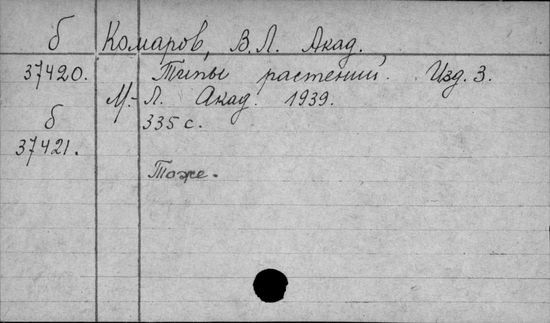 б Комаров, В.Л. Акад.
37420. Типы растений. Изд. 3.
М.-Л. Акад. 1939.
б 335 с.
37421.
Тоже.